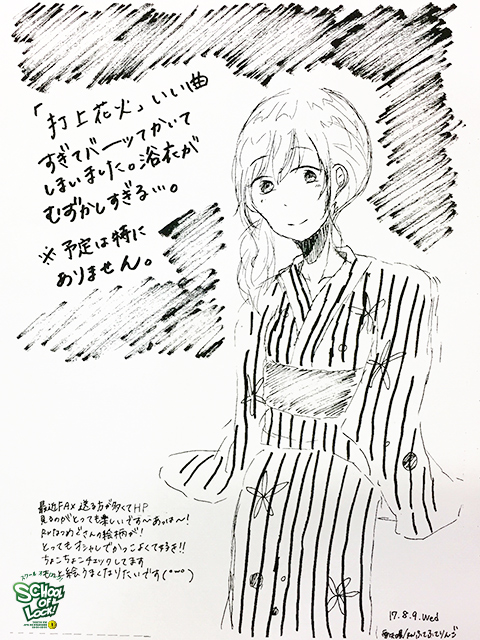 「打上花火」いい曲
すぎてバーッてかいて
しまいました。浴衣が
むずかしすぎる…。
※予定は特に
ありません。
最近FAX送る方が多くてHP
見るのがとっても楽しいです〜あっは〜!
さんの絵柄が!
とってもオシャレでかっこよくて好き!!
ちょこちょこチェックしてます
もっと絵うまくなりたいです(°ω°)
SCHOOL
OF
LOCK!
17.8.9.wed